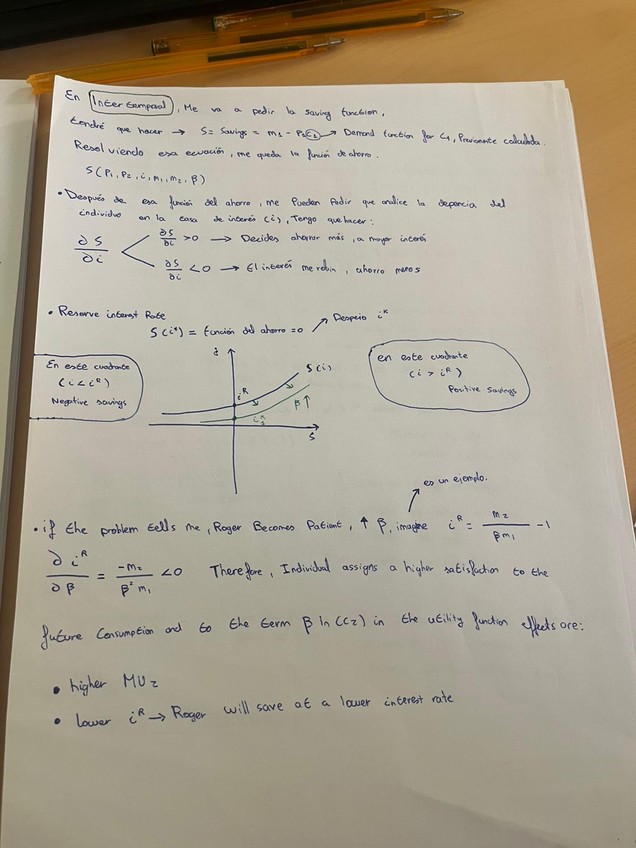 En Intertemporal, Me va a pedir la saving function,
tendré que hacer → S = Savings = m1 - P1C1 → Demand function for C1, Previamente calculada.
Resolviendo esa ecuación, me queda la función de ahorro.
S(P1, P2, i, m1, m2, β)
• Después de esa función del ahorro, me Pueden Pedir que analice la depencia del
individuo en la tasa de interés (i), Tengo que hacer:
∂S/∂i
∂S/∂i >0 → Decides ahorrar más, a mayor interés
∂S/∂i <0 → El interés me roba, ahorro menos
• Reserve interest Rate
S(i*) = función del ahorro = 0 ↗ Despejo i*
En este cuadrante
(i < iR)
Negative savings
i
iR
S(i)
β ↑
S
en este cuadrante
(i > iR)
Positive Savings
es un ejemplo.
• if the problem tells me, Roger Becomes Patient, ↑ β, imagine iR = m2/βm1 - 1
∂iR/∂β = -m2/β²m1 <0 Therefore, Individual assigns a higher satisfaction to the
future Consumption and to the term β ln(C2) in the utility function effects are:
• higher MU2
• lower iR → Roger will save at a lower interest rate